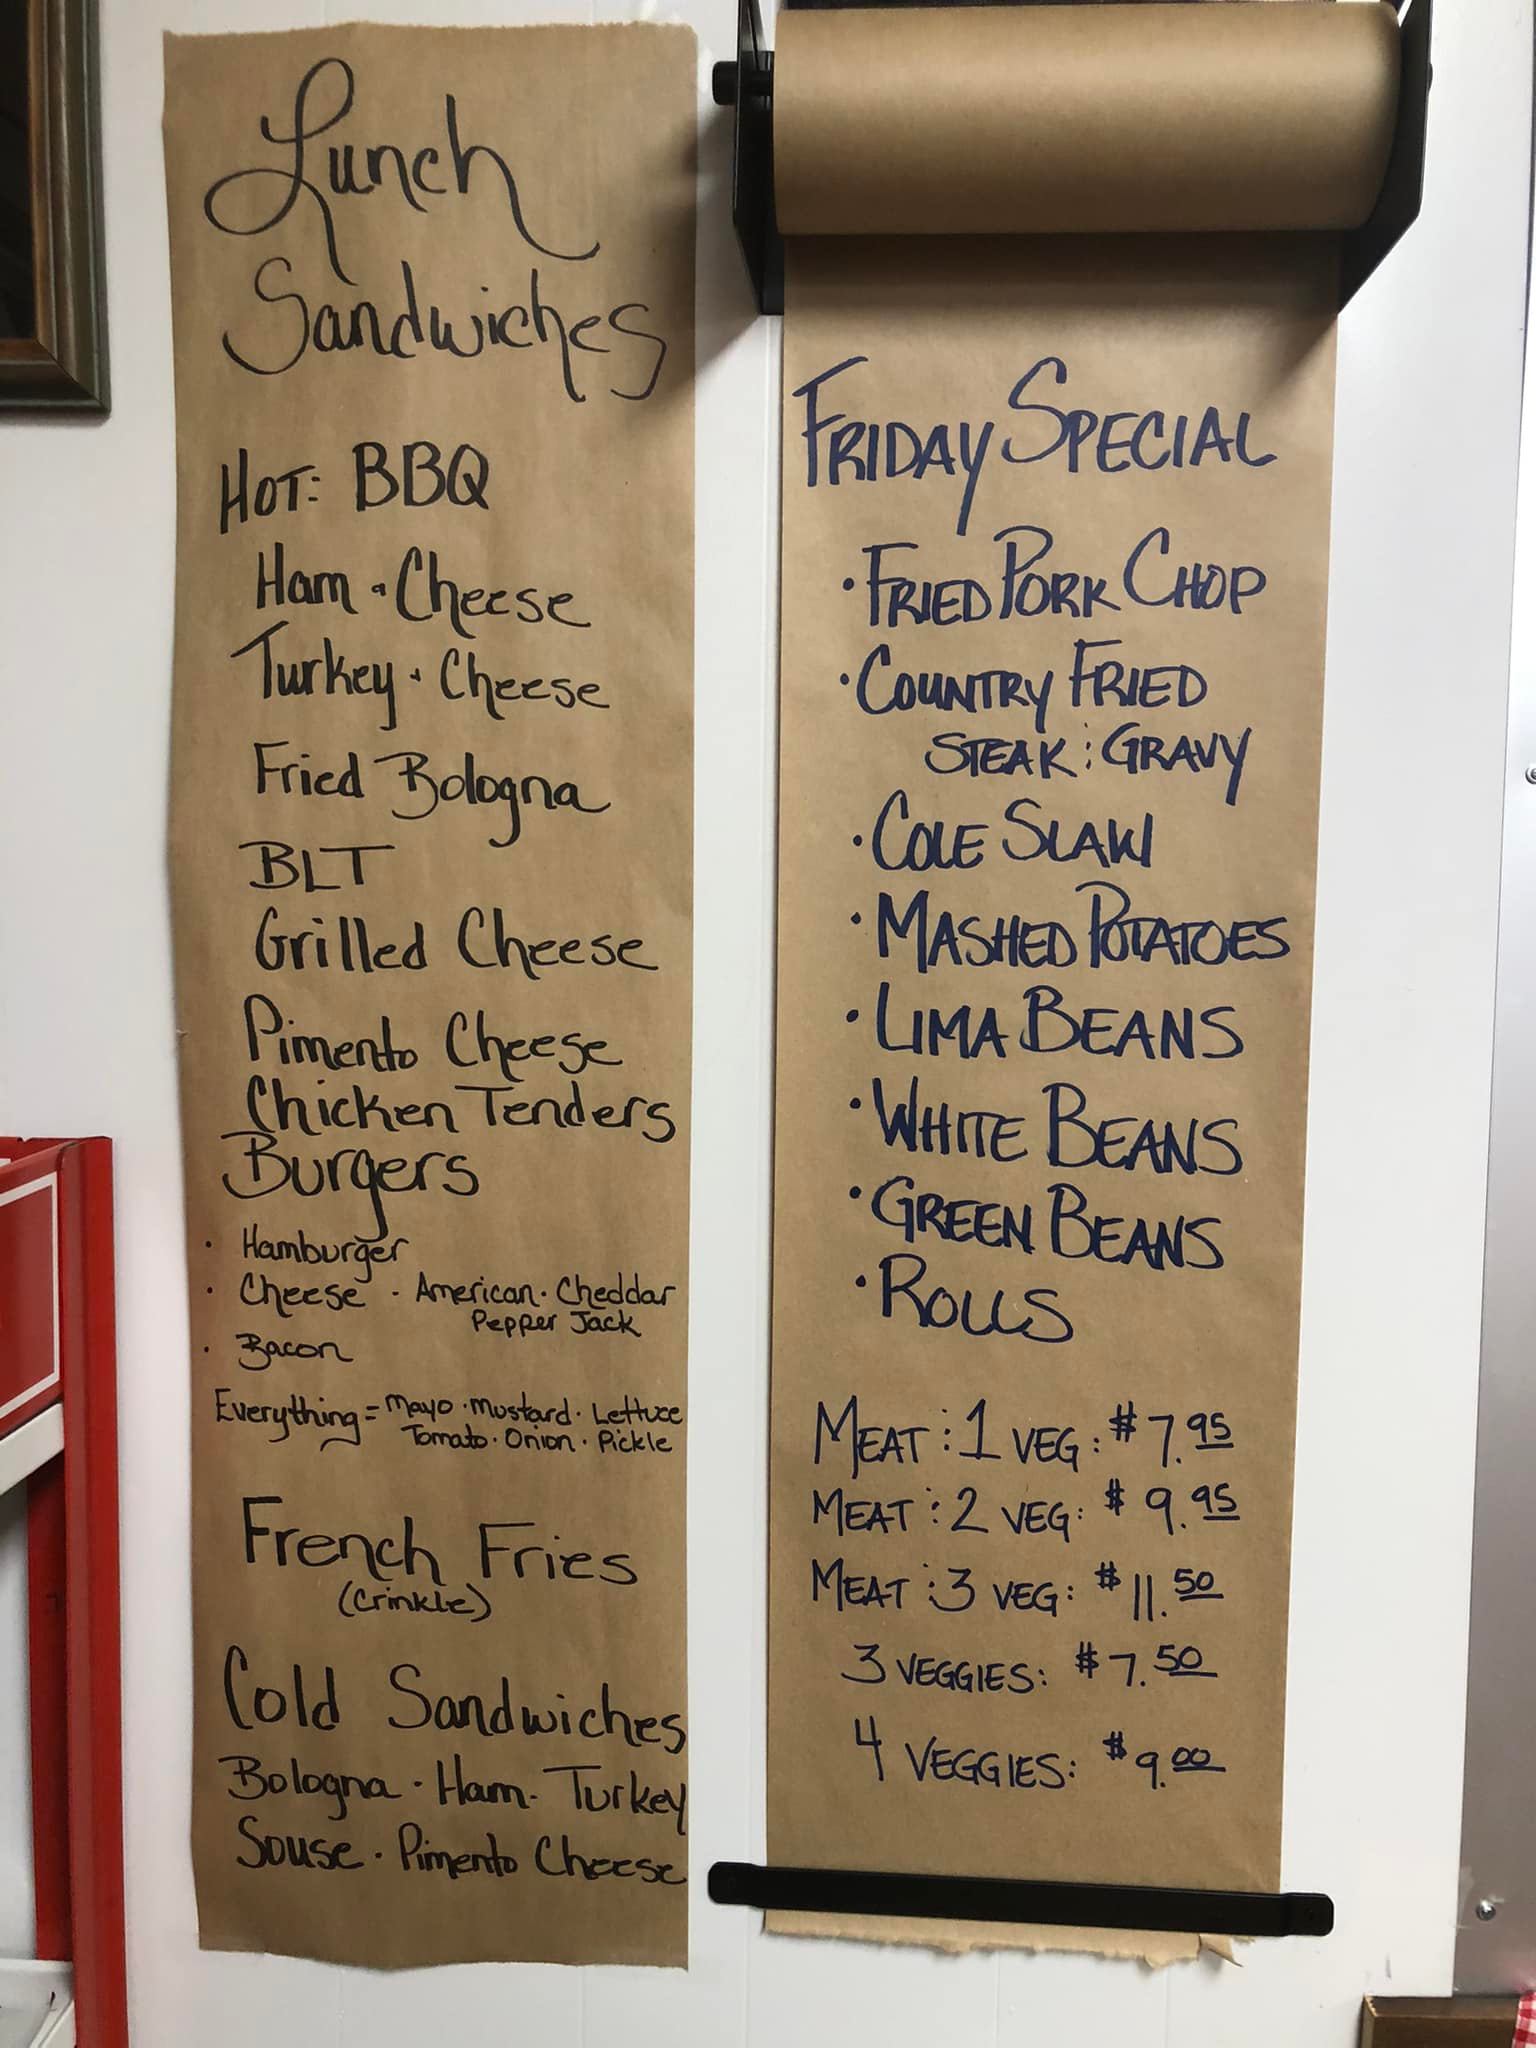 Lunch
Sandwiches
Hot: BBQ
Ham & Cheese
Turkey & Cheese
Fried Bologna
BLT
Grilled Cheese
Pimento Cheese
Chicken Tenders
Burgers
· Hamburger
· Cheese · American · Cheddar
Pepper Jack
· Bacon
Everything = Mayo · Mustard · Lettuce
Tomato · Onion · Pickle
French Fries
(Crinkle)
Cold Sandwiches
Bologna · Ham · Turkey
Souse · Pimento Cheese
FRIDAY SPECIAL
· FRIED PORK CHOP
· COUNTRY FRIED
STEAK : GRAVY
· COLE SLAW
· MASHED POTATOES
· LIMA BEANS
· WHITE BEANS
· GREEN BEANS
· ROLLS
MEAT : 1 VEG: $7.95
MEAT : 2 VEG: $9.95
MEAT : 3 VEG: $11.50
3 VEGGIES: $7.50
4 VEGGIES: $9.00